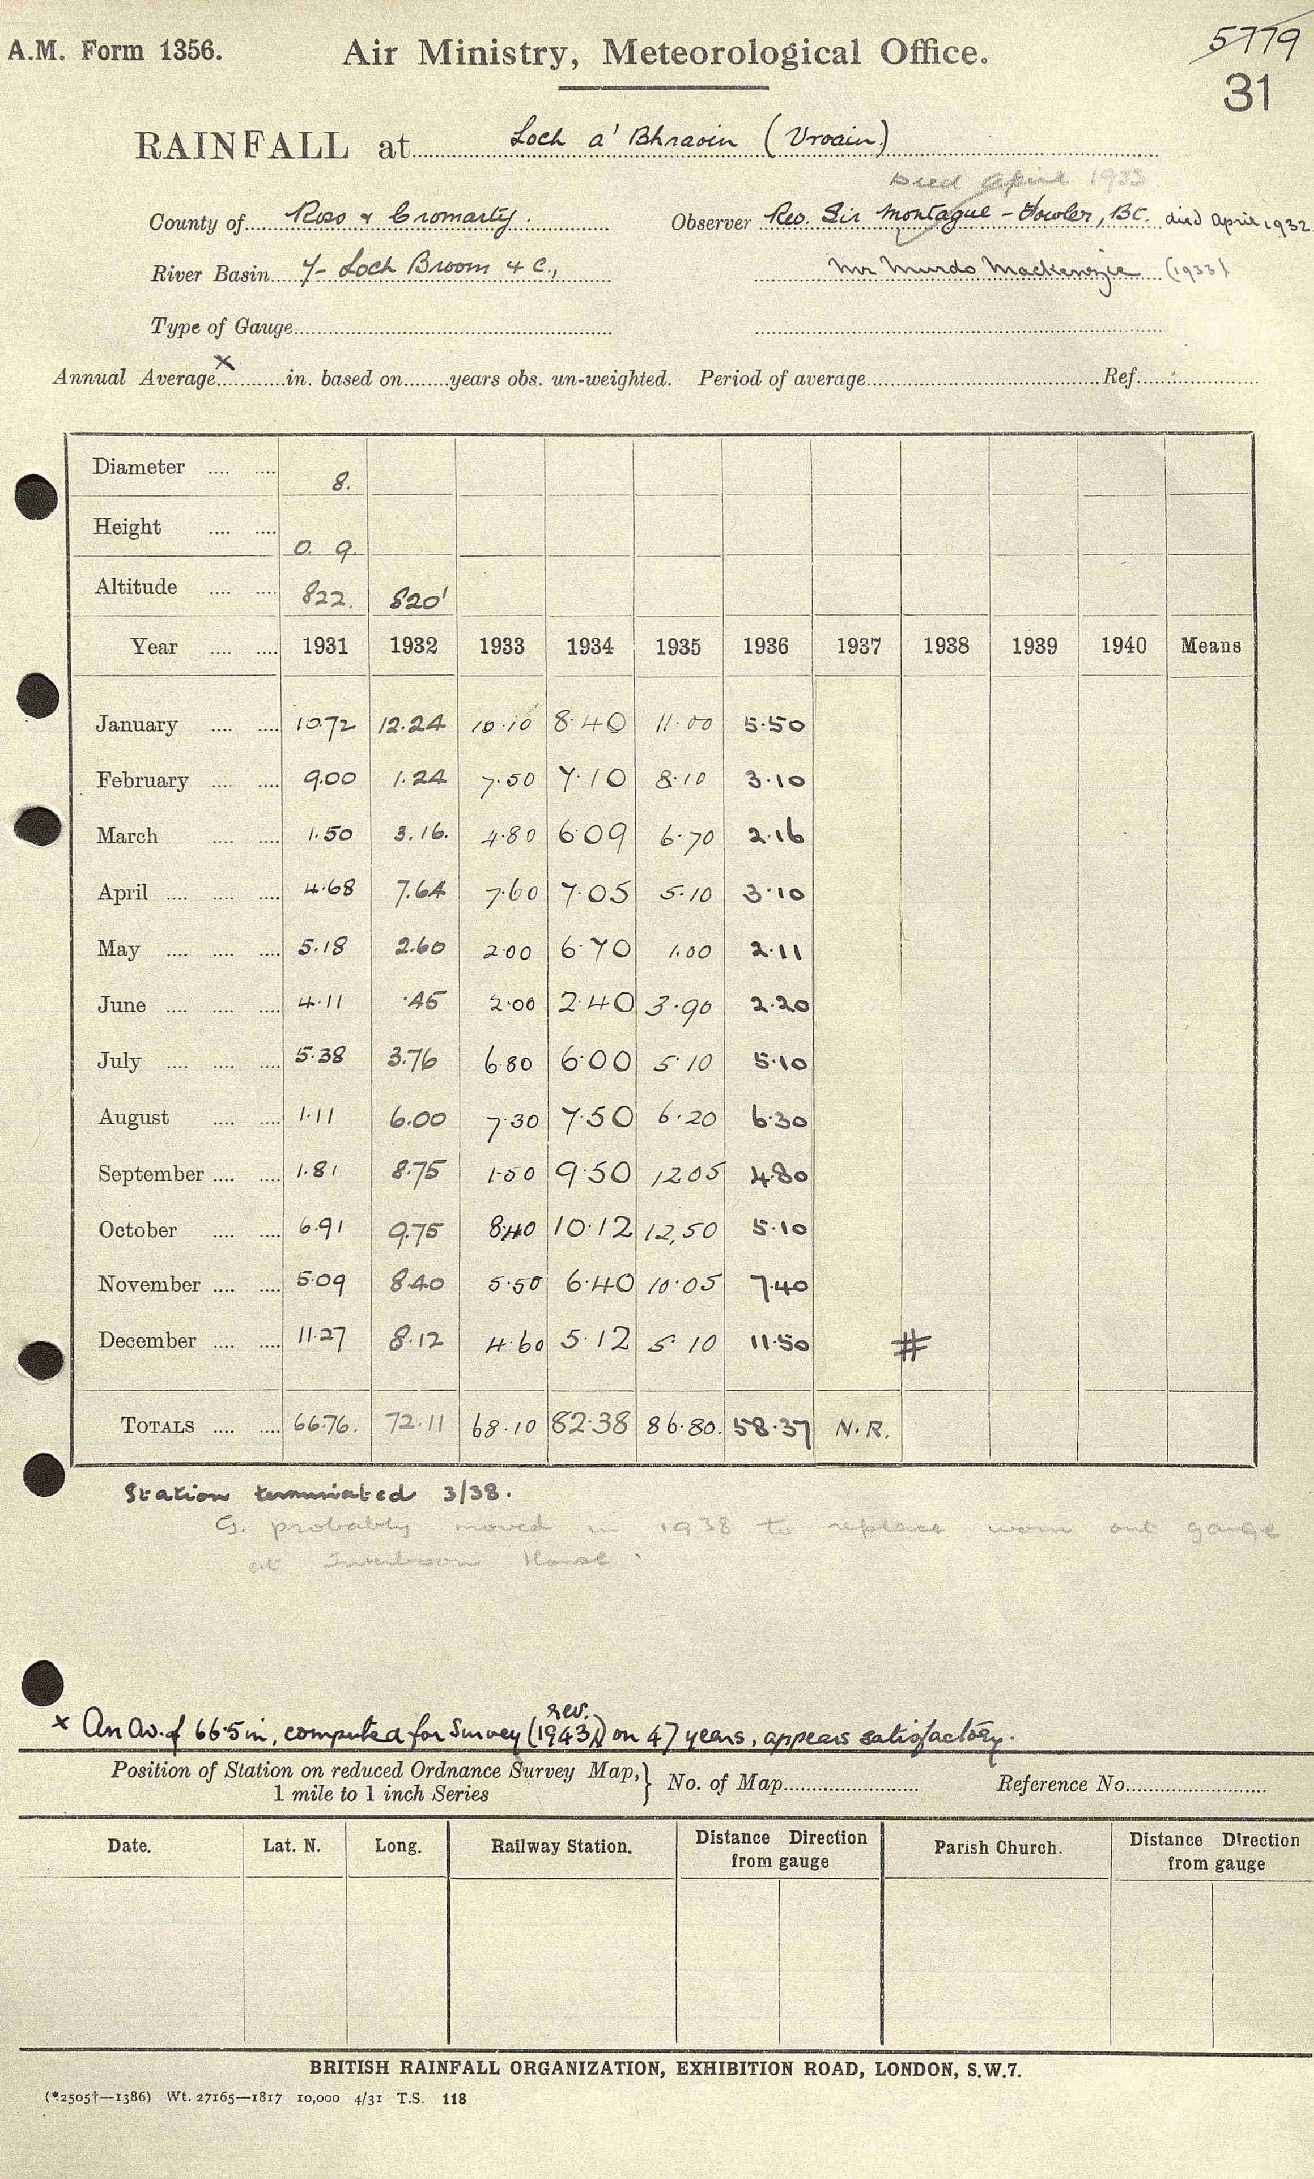 A.M. Form 1356.
Air Ministry, Meteorological Office.
5779
31
RAINFALL at Loch a' Bhraoin (Vroain)
Died April 1933
County of Ross & Cromarty. Observer Rev. Sir Montague-Fowler, Bt. died April 1932
River Basin 7- Loch Broom & C., Mr Murdo Mackenzie (1933)
Type of Gauge
Annual Average x in. based on years obs. un-weighted. Period of average Ref.
Diameter 8.
Height 0. 9.
Altitude 822. 820'
Year 1931 1932 1933 1934 1935 1936 1937 1938 1939 1940 Means
January 10.72 12.24 10.10 8.40 11.00 5.50
February 9.00 1.24 7.50 7.10 8.10 3.10
March 1.50 3.16. 4.80 6.09 6.70 2.16
April 4.68 7.64 7.60 7.05 5.10 3.10
May 5.18 2.60 2.00 6.70 1.00 2.11
June 4.11 .45 2.00 2.40 3.90 2.20
July 5.38 3.76 6.80 6.00 5.10 5.10
August 1.11 6.00 7.30 7.50 6.20 6.30
September 1.81 8.75 1.50 9.50 12.05 4.80
October 6.91 9.75 8.40 10.12 12,50 5.10
November 5.09 8.40 5.50 6.40 10.05 7.40
December 11.27 8.12 4.60 5.12 5.10 11.50 #
TOTALS 66.76. 72.11 68.10 82.38 86.80. 58.37 N.R.
Station terminated 3/38.
G. probably moved in 1938 to replace worn out gauge
at Inverbroom House.
rev.
x An Av. of 66.5 in, computed for Survey (1943) on 47 years, appears satisfactory.
Position of Station on reduced Ordnance Survey Map, } No. of Map Reference No.
1 mile to 1 inch Series
Date. Lat. N. Long. Railway Station. Distance Direction Parish Church. Distance Direction
from gauge from gauge
BRITISH RAINFALL ORGANIZATION, EXHIBITION ROAD, LONDON, S.W.7.
(*2505†—1386) Wt. 27165—1817 10,000 4/31 T.S. 118